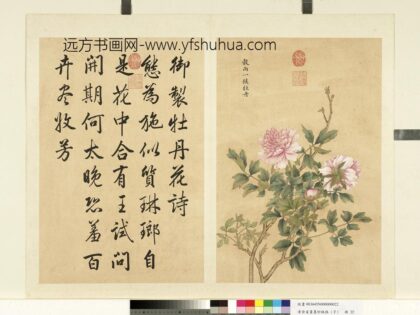 远方书画网-www.yfshuhua.com
穀雨一候牡丹
御製牡丹花詩
態為施似質琳瑯自
是花中合有王試問
開期何太晚恐羞百
卉尽收芳